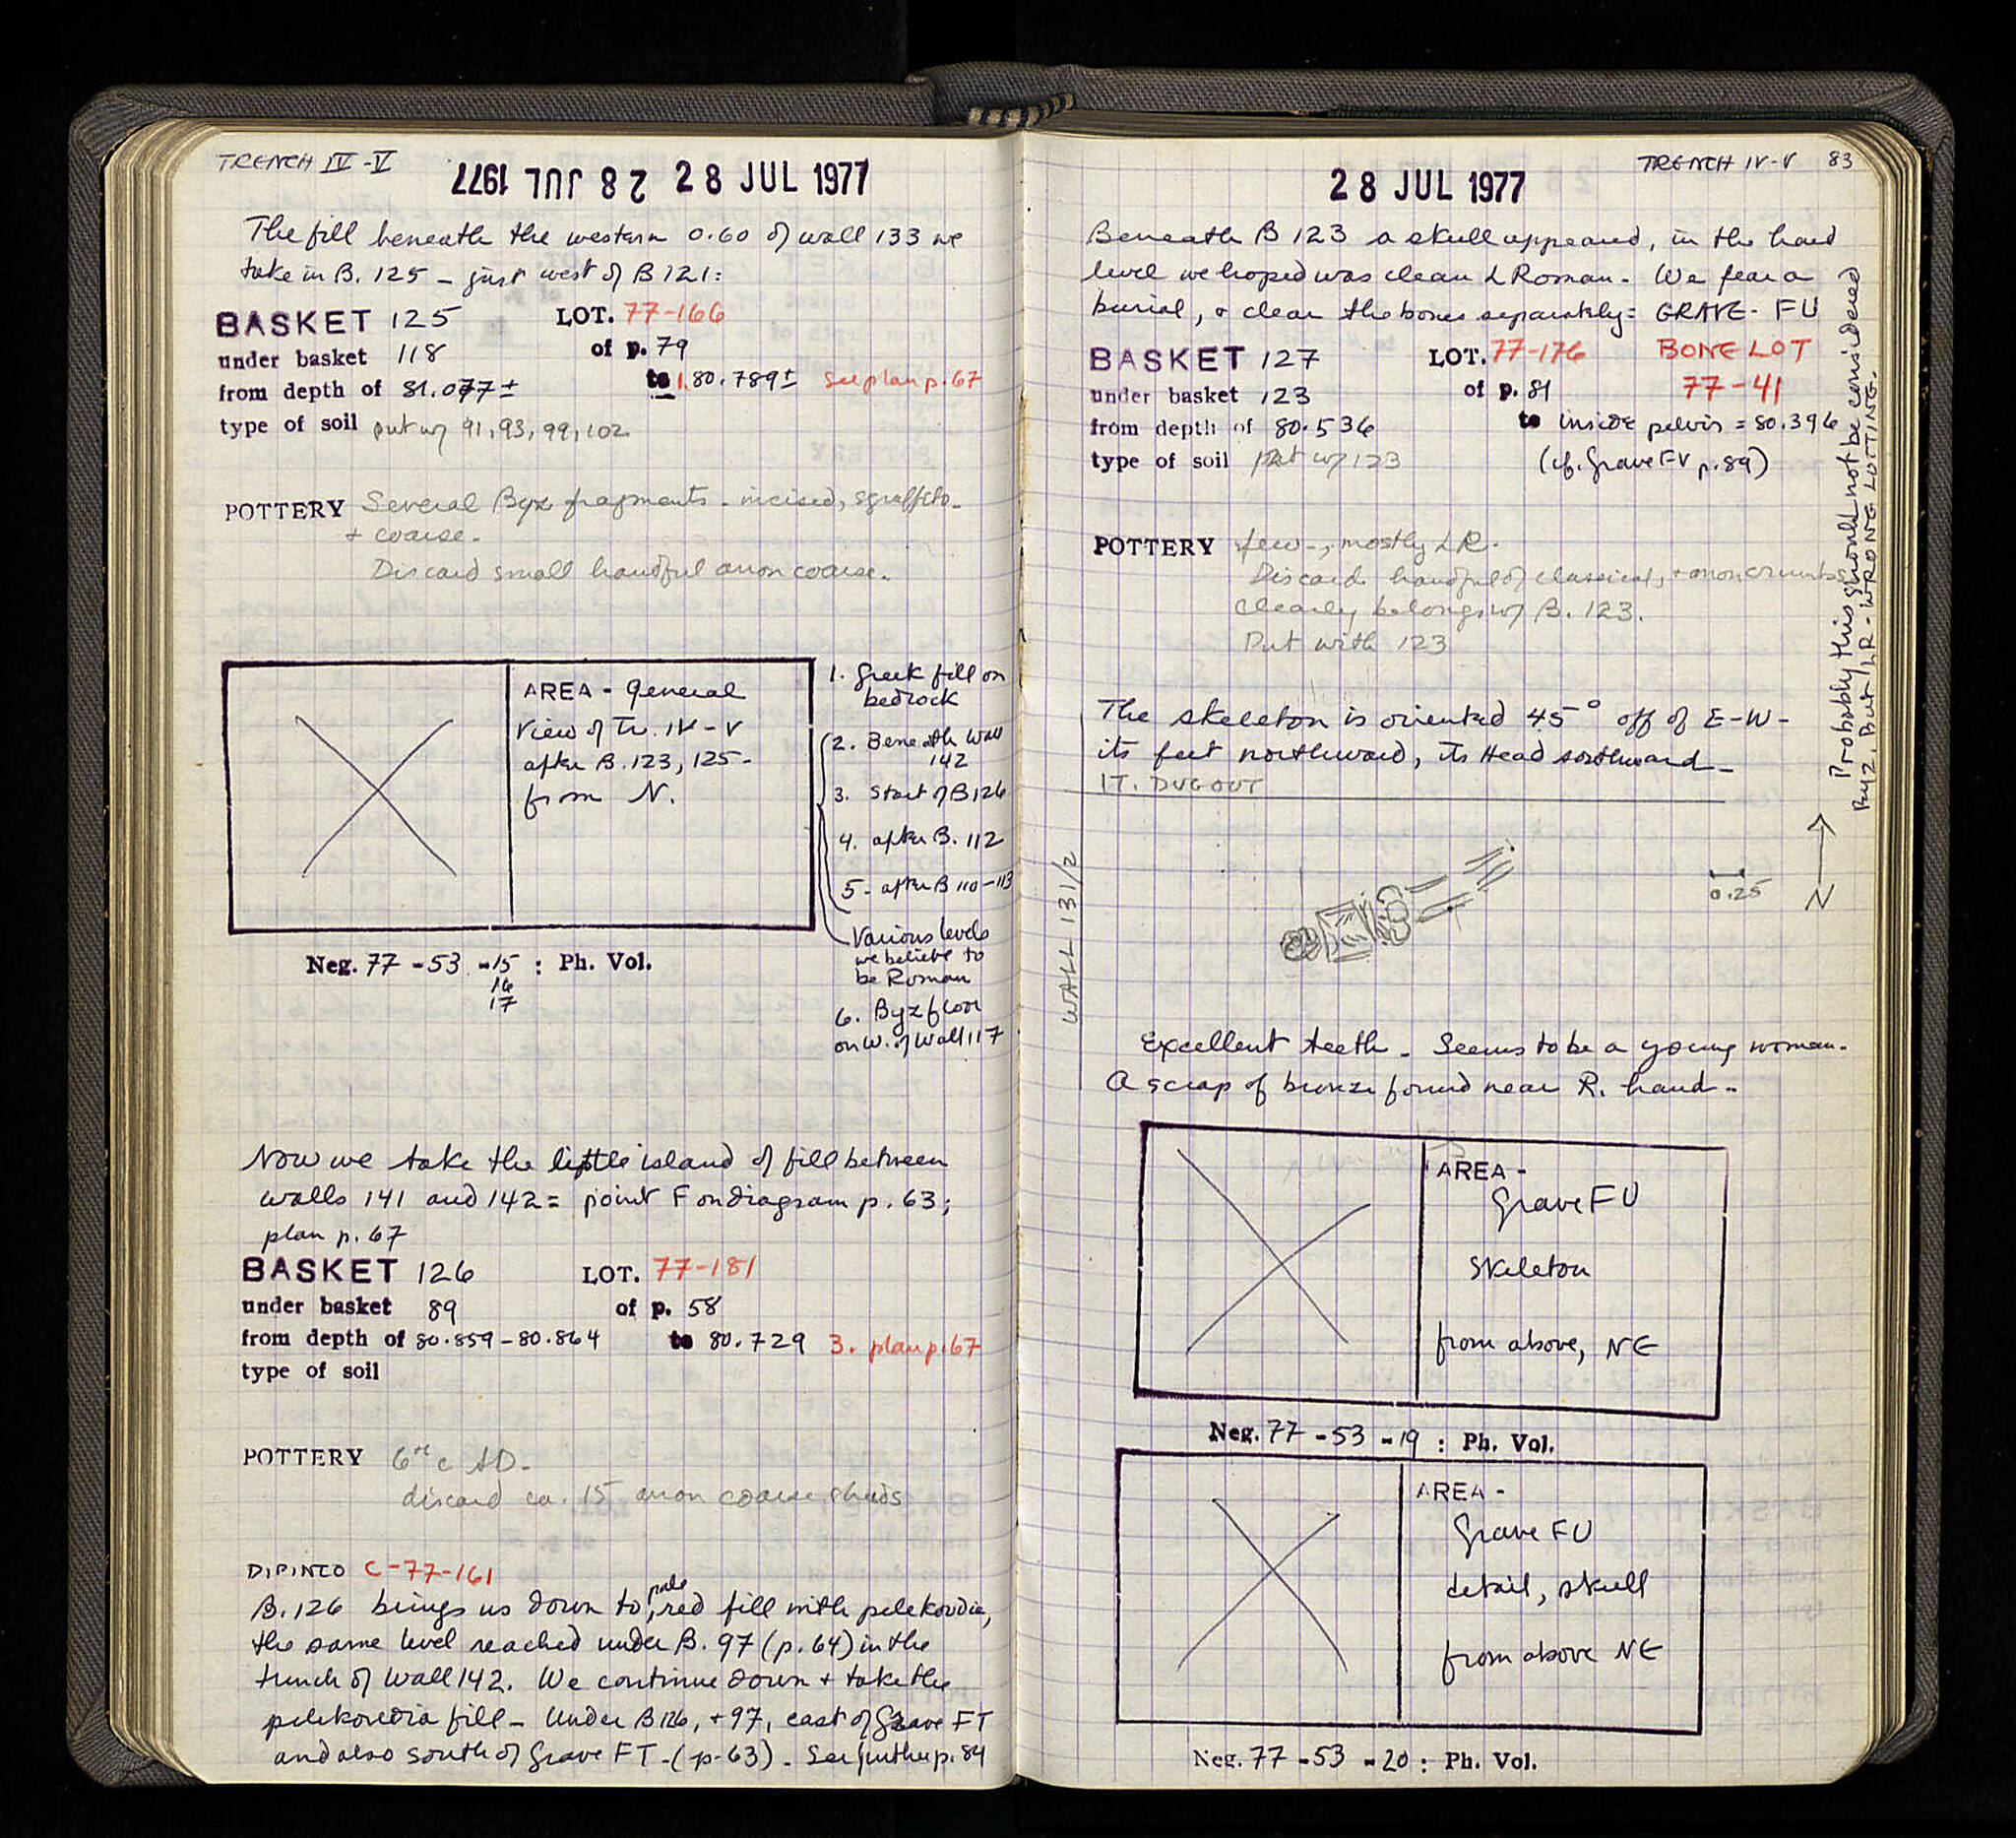 TRENCH IV-V
28 JUL 1977 28 JUL 1977
The fill beneath the western 0.60 of wall 133 we
take in B. 125 - just west of B 121:
BASKET 125 LOT. 77-166
under basket 118 of p. 79
from depth of 81.077± to 1. 80.789± See plan p. 67
type of soil put w/ 91, 93, 99, 102
POTTERY Several Byz fragments - incised, sgraffito -
+ coarse.
Discard small handful anon coarse.
AREA - General
View of Tr. IV-V
after B. 123, 125 -
from N.
1. Greek fill on
bedrock
2. Beneath Wall
142
3. Start of B 126
4. after B. 112
5 - after B 110-113
Various levels
we believe to
be Roman
6. Byz floor
on W. of Wall 117
Neg. 77 - 53 - 15 : Ph. Vol.
16
17
Now we take the little island of fill between
walls 141 and 142 = point F on diagram p. 63;
plan p. 67
BASKET 126 LOT. 77-181
under basket 89 of p. 58
from depth of 80.859 - 80.864 to 80.729 3. plan p. 67
type of soil
POTTERY 6th c AD -
discard ca. 15 anon coarse sherds
DIPINTO C-77-161
B. 126 brings us down to pale red fill with pelekoudia,
the same level reached under B. 97 (p. 64) in the
trench of Wall 142. We continue down + take the
pelekoudia fill - Under B 126, + 97, east of Grave FT
and also south of Grave FT - (p. 63) - See further p. 84
TRENCH IV-V 83
28 JUL 1977
Beneath B 123 a skull appeared, in the hard
level we hoped was clean L Roman. We fear a
burial, & clear the bones separately: GRAVE - FU
BASKET 127 LOT. 77-176 BONE LOT
under basket 123 of p. 81 77-41
from depth of 80.536 to inside pelvis = 80.396
type of soil put w/ 123 (cf. Grave FV p. 89)
POTTERY few -, mostly LR.
Discard handful of classical, + anon crumbs
clearly belongs w/ B. 123.
Put with 123
Probably this should not be considered
Byz, But LR - WRONG LOTTING.
The skeleton is oriented 45° off of E-W -
its feet northward, its Head southward -
IT. DUG OUT
WALL 131/2
0.25
N
Excellent teeth - Seems to be a young woman.
A scrap of bronze found near R. hand -
AREA -
Grave FU
Skeleton
from above, NE
Neg. 77 - 53 - 19 : Ph. Vol.
AREA -
Grave FU
detail, skull
from above NE
Neg. 77 - 53 - 20 : Ph. Vol.